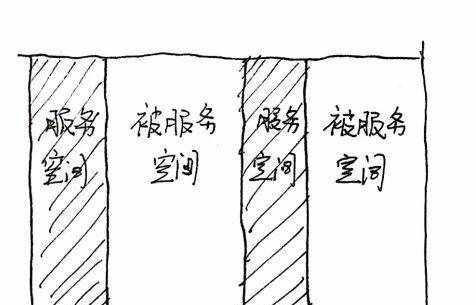 服务
空间
被服务
空间
服务
空间
被服务
空间